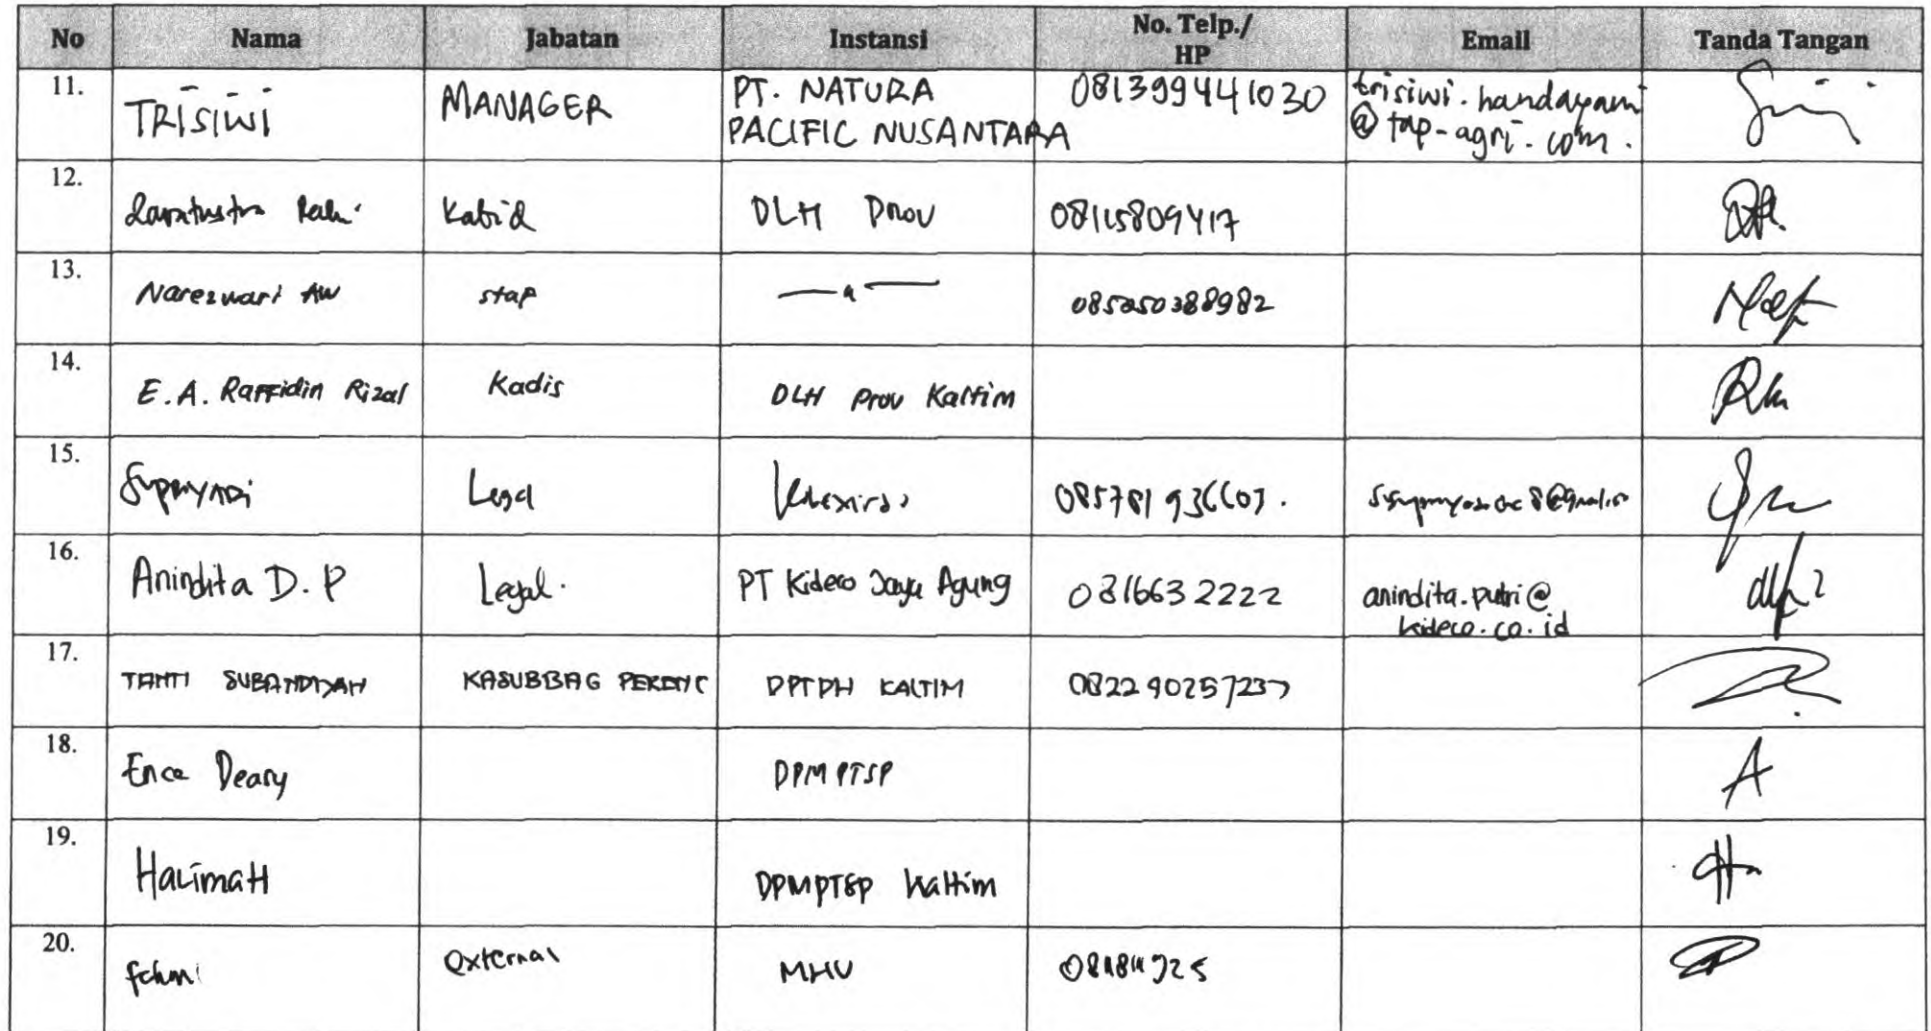 No Nama Jabatan Instansi No. Telp./ HP Email Tanda Tangan
11. TRISIWI MANAGER PT. NATURA PACIFIC NUSANTARA 081399441030 trisiwi.handayani @tap-agri.com.
12. Kabid DLH Prov 08115809417
13. Nareswari AW stap 085250388982
14. E.A. Raffidin Rizal Kadis DLH Prov Kaltim
15. Legal
16. Anindita D.P Legal. PT Kideco Jaya Agung 0816632222 anindita.putri@ kideco.co.id
17. SUBANDIYAH KASUBBAG DPTPH KALTIM
18. Ence Deasy DPMPTSP
19. HALIMAH DPMPTSP Kaltim
20. external MHU